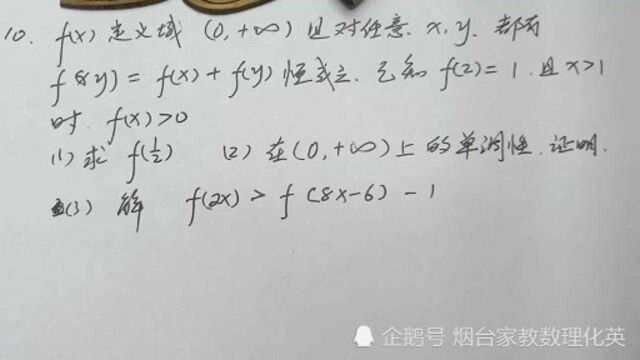 10. f(x) 定义域 (0,+∞) 且对任意 x,y. 都有
f(xy) = f(x) + f(y) 恒成立. 已知 f(2)=1. 且 x>1
时. f(x)>0
(1) 求 f(½) (2) 在(0,+∞)上的单调性.证明.
(3) 解 f(2x) > f(8x-6) - 1
企鹅号 烟台家教数理化英